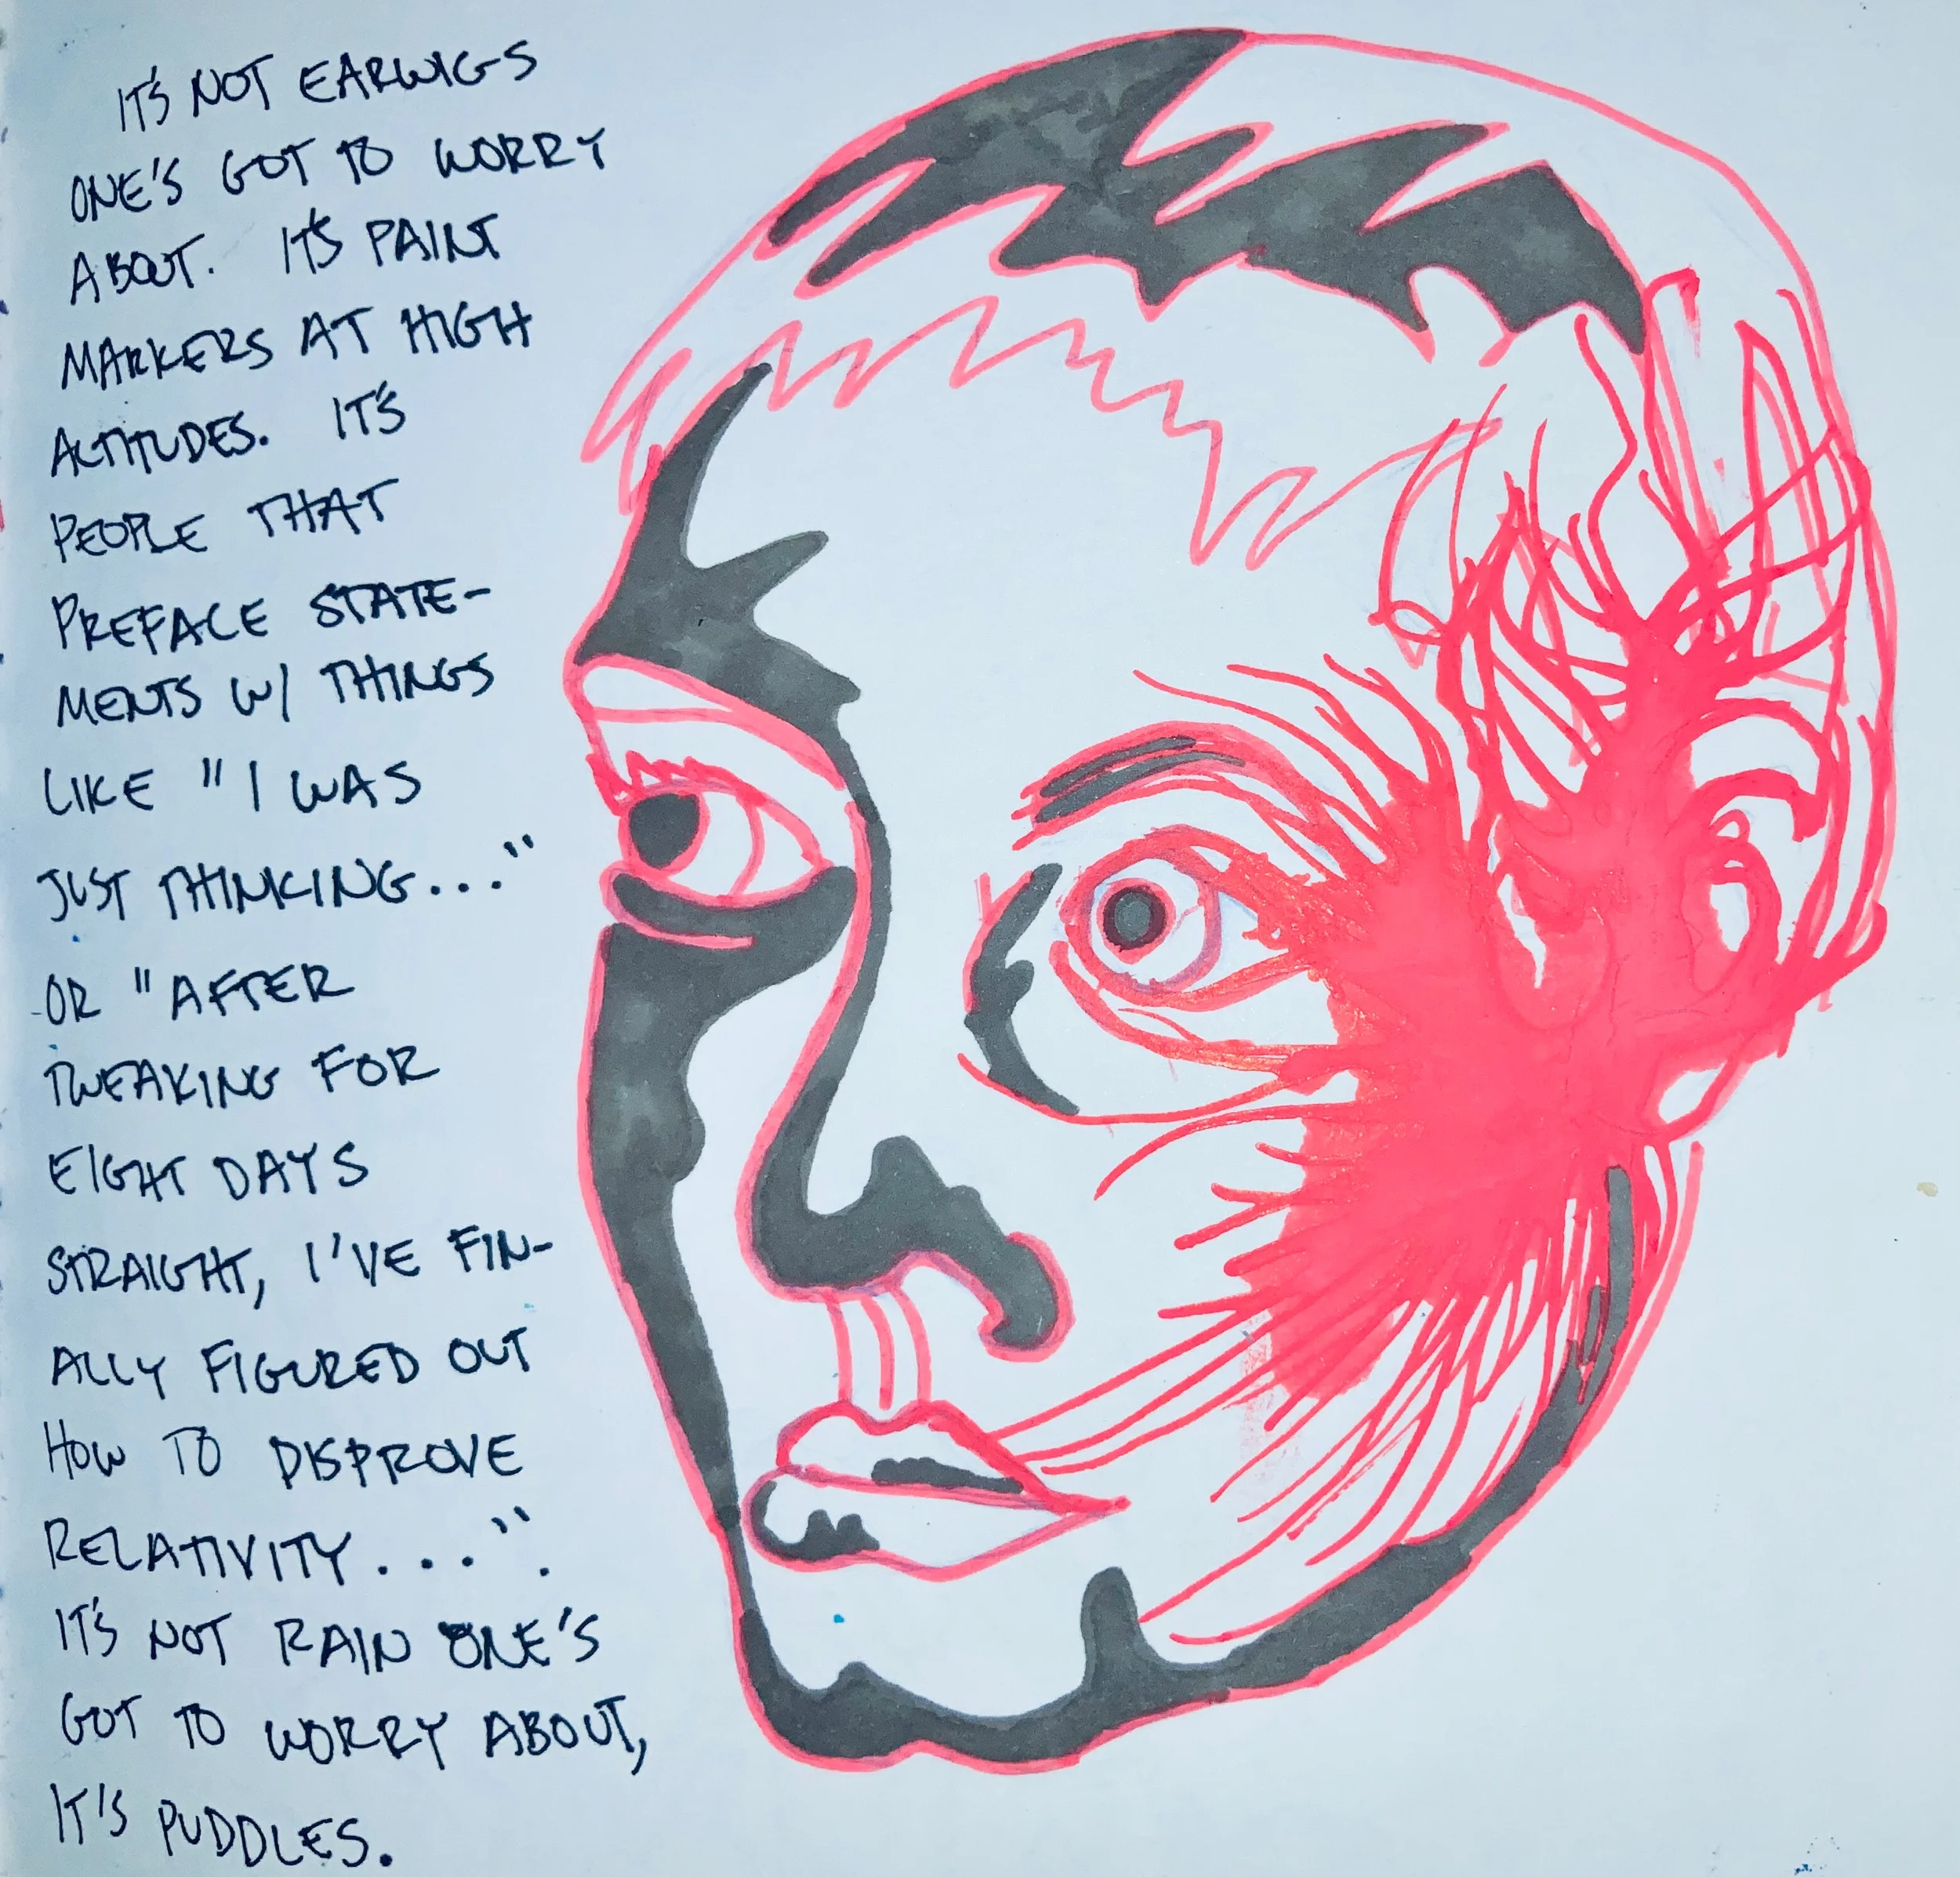 IT'S NOT EARWIGS
ONE'S GOT TO WORRY
ABOUT. IT'S PAINT
MARKERS AT HIGH
ALTITUDES. IT'S
PEOPLE THAT
PREFACE STATE-
MENTS W/ THINGS
LIKE "I WAS
JUST THINKING..."
OR "AFTER
TWEAKING FOR
EIGHT DAYS
STRAIGHT, I'VE FIN-
ALLY FIGURED OUT
HOW TO DISPROVE
RELATIVITY...".
IT'S NOT RAIN ONE'S
GOT TO WORRY ABOUT,
IT'S PUDDLES.